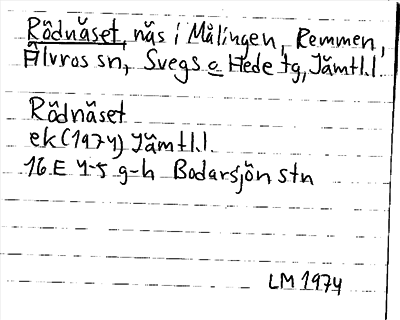 Rödnäset, näs i Målingen, Remmen,
Älvros sn, Svegs o Hede tg, Jämtl.l.
Rödnäset
ek (1974) Jämtl.l.
16.E 4-5 g-h Bodarsjön stn
LM 1974